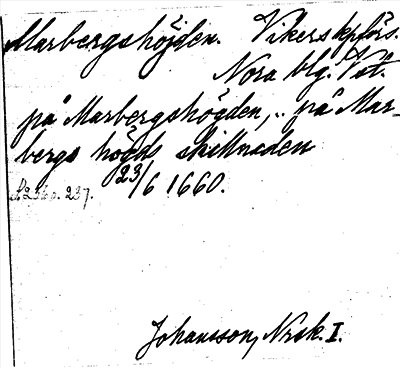 Marbergshöjden. Vikers kpförs.
Nora blg. Vstl.
på Marbergshögden, .. på Mar-
bergs högds skillnaden
23/6 1660.
s. 236 o. 237.
Johansson, Nrsk. I.